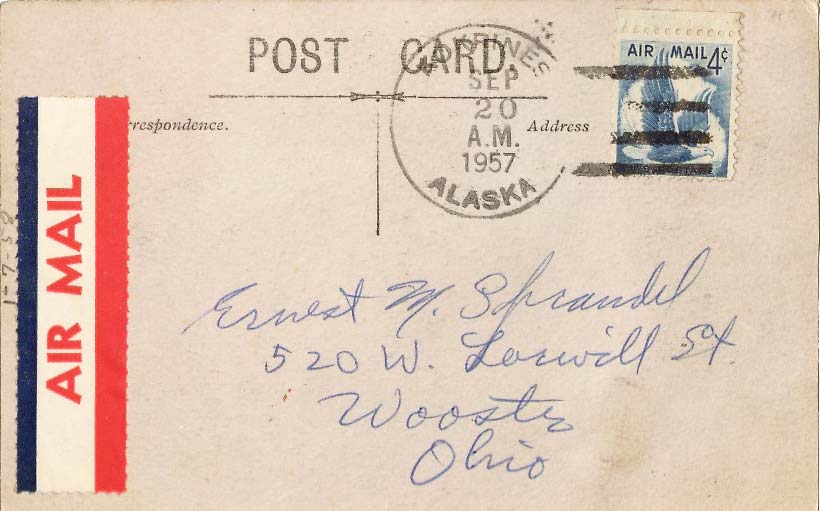 POST CARD.
Correspondence.
Address
WOKPINES
SEP
20
A.M.
1957
ALASKA
AIR MAIL 4¢
AIR MAIL
1-7-58
Ernest M. Sprandel
520 W. Loswill St.
Wooster
Ohio